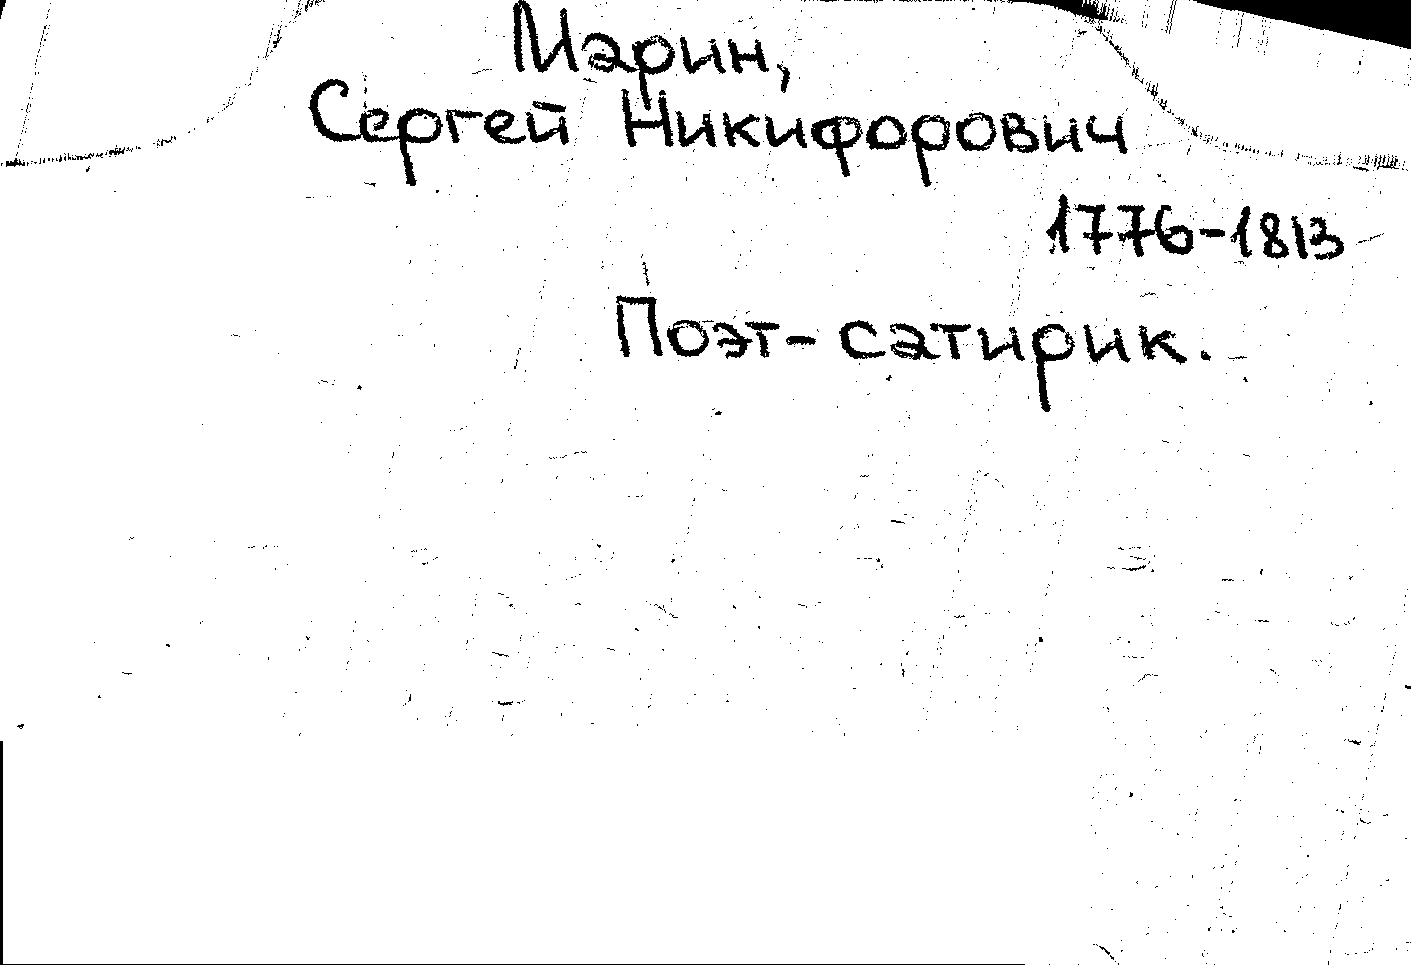 Марин,
Сергей Никифорович
1776-1813
Поэт-сатирик.